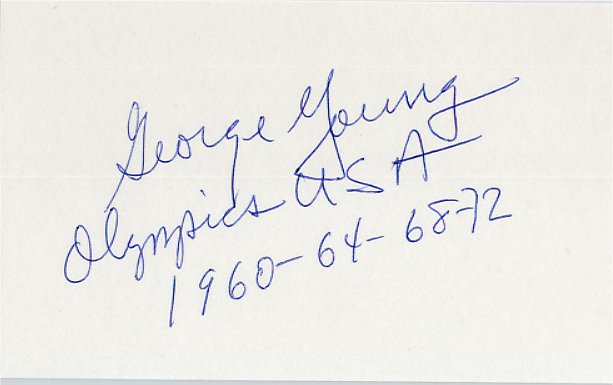 George Young
Olympics USA
1960-64-68-72